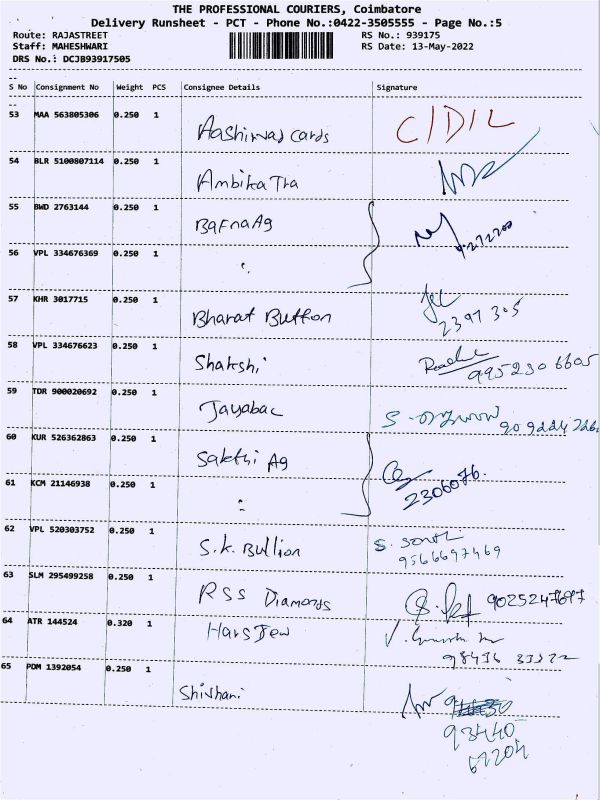 THE PROFESSIONAL COURIERS, Coimbatore
Delivery Runsheet - PCT - Phone No.:0422-3505555 - Page No.:5
Route: RAJASTREET RS No.: 939175
Staff: MAHESHWARI RS Date: 13-May-2022
DRS No.: DCJB93917505
S No Consignment No Weight PCS Consignee Details Signature
53 MAA 563805306 0.250 1 Aashirwad cards C/D/L
54 BLR 5100807114 0.250 1 Ambika Tra
55 BWD 2763144 0.250 1 Bafna Ag
56 VPL 334676369 0.250 1 "
57 KHR 3017715 0.250 1 Bharat Button 2397305
58 VPL 334676623 0.250 1 Shakshi 9952306605
59 TDR 900020692 0.250 1 Jayabac
60 KUR 526362863 0.250 1 Sakthi Ag
61 KCM 21146938 0.250 1 " 2306076.
62 VPL 520303752 0.250 1 S.K. Bullion 9566697469
63 SLM 295499258 0.250 1 RSS Diamonds
64 ATR 144524 0.320 1 Hars Jew
65 PDM 1392054 0.250 1 Shivhani
93440